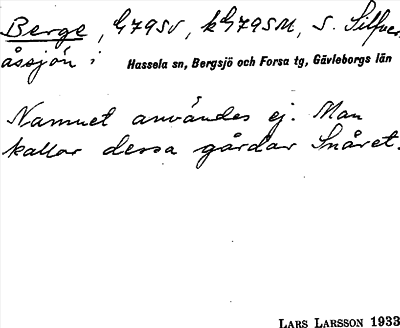 Berge, G79SV, kG79SM, S. Silfver-
åssjön i
Hassela sn, Bergsjö och Forsa tg, Gävleborgs län
Namnet användes ej. Man
kallar dessa gårdar Snåret.
LARS LARSSON 1933